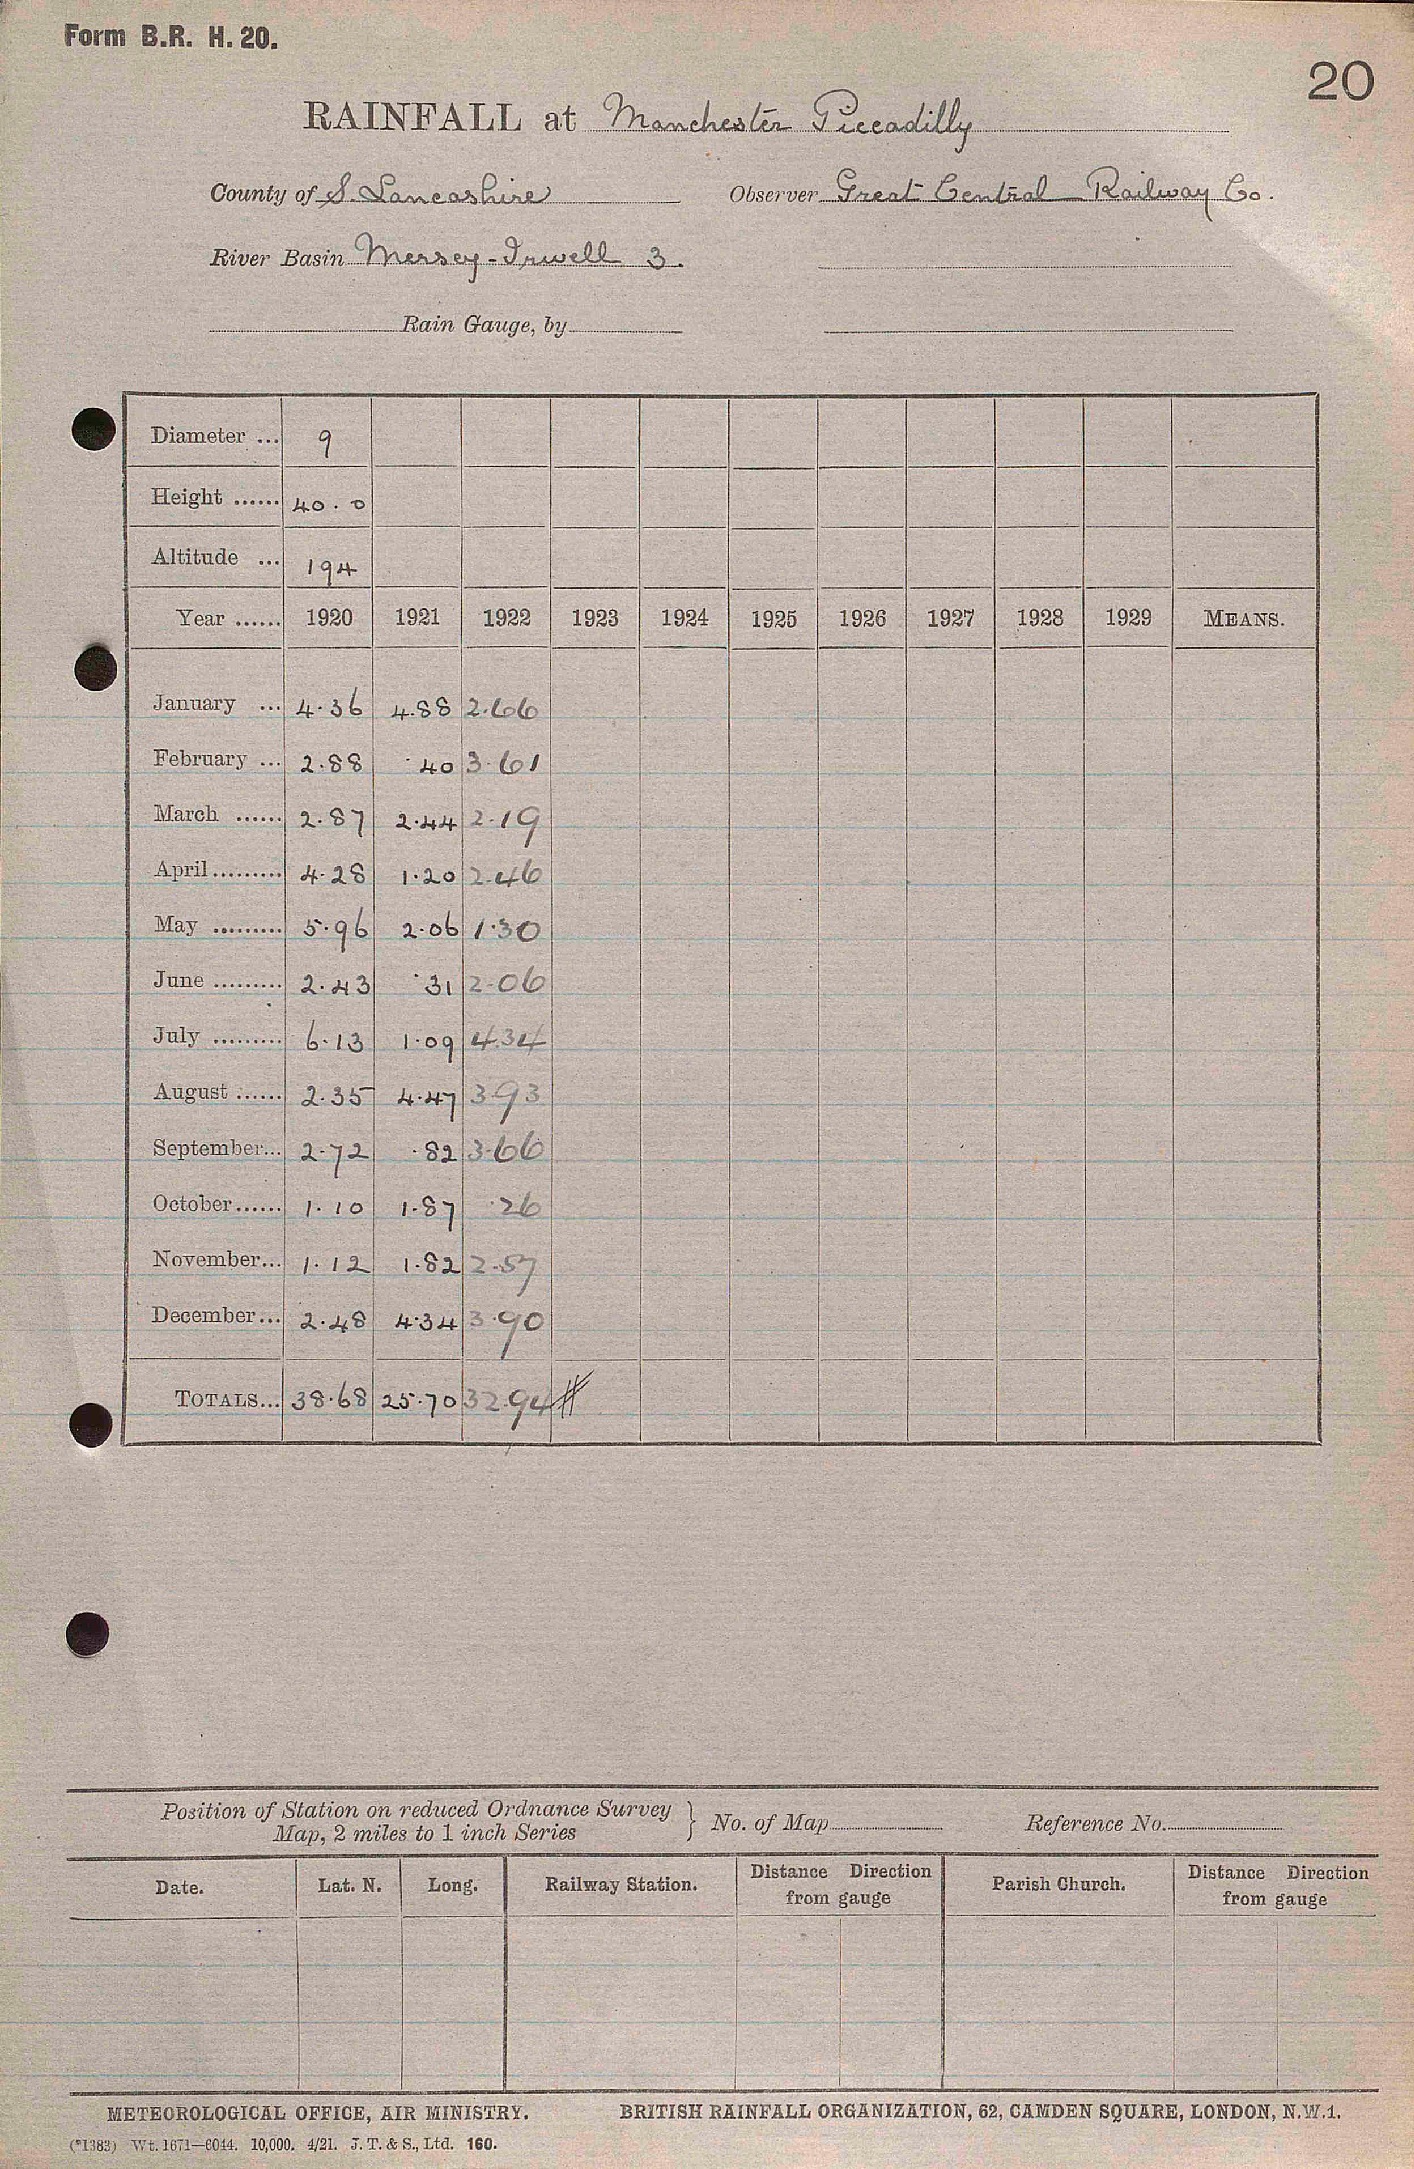 Form B.R. H. 20.
20
RAINFALL at Manchester Piccadilly
County of S. Lancashire Observer Great Central Railway Co.
River Basin Mersey-Irwell 3.
Rain Gauge, by
Diameter ... 9
Height ...... 40.0
Altitude ... 194
Year ...... 1920 1921 1922 1923 1924 1925 1926 1927 1928 1929 MEANS.
January ... 4.36 4.88 2.66
February ... 2.88 .40 3.61
March ...... 2.87 2.44 2.19
April ......... 4.28 1.20 2.46
May ......... 5.96 2.06 1.30
June ......... 2.43 .31 2.06
July ......... 6.13 1.09 4.34
August ...... 2.35 4.47 3.93
September... 2.72 .82 3.66
October...... 1.10 1.87 .26
November... 1.12 1.82 2.57
December... 2.48 4.34 3.90
TOTALS... 38.68 25.70 32.94 #
Position of Station on reduced Ordnance Survey } No. of Map Reference No.
Map, 2 miles to 1 inch Series
Date. Lat. N. Long. Railway Station. Distance Direction from gauge Parish Church. Distance Direction from gauge
METEOROLOGICAL OFFICE, AIR MINISTRY. BRITISH RAINFALL ORGANIZATION, 62, CAMDEN SQUARE, LONDON, N.W.1.
(*1383) Wt. 1671—6044. 10,000. 4/21. J. T. & S., Ltd. 160.